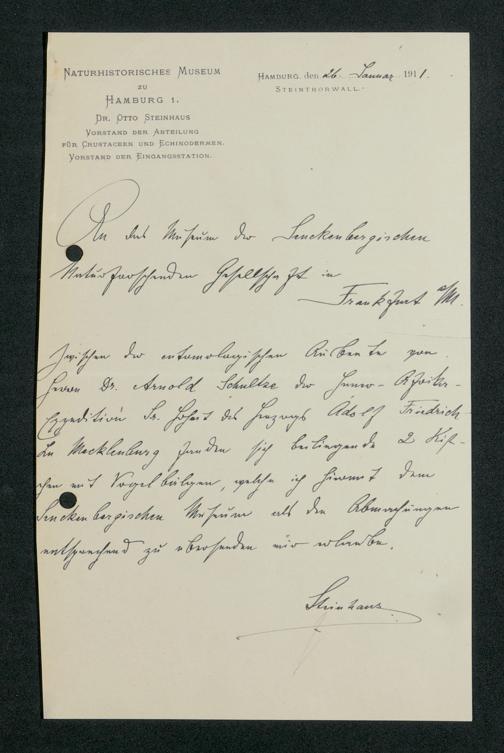 Naturhistorisches Museum
zu
Hamburg 1.
Dr. Otto Steinhaus
Vorstand der Abteilung
für Crustaceen und Echinodermen.
Vorstand der Eingangsstation.
Hamburg, den 26. Januar 1911.
Steinthorwall.
An das Museum der Senckenbergischen
Naturforschenden Gesellschaft in
Frankfurt a/M.
Zwischen der entomologischen Ausbeute von
Herrn Dr. Arnold Schultze der Inner-Afrika-
Expedition Sr. Hoheit des Herzogs Adolf Friedrich
zu Mecklenburg fanden sich beiliegende 2 Kist-
chen mit Vogelbälgen, welche ich hiermit dem
Senckenbergischen Museum als den Abmachungen
entsprechend zu übersenden mir erlaube.
Steinhaus